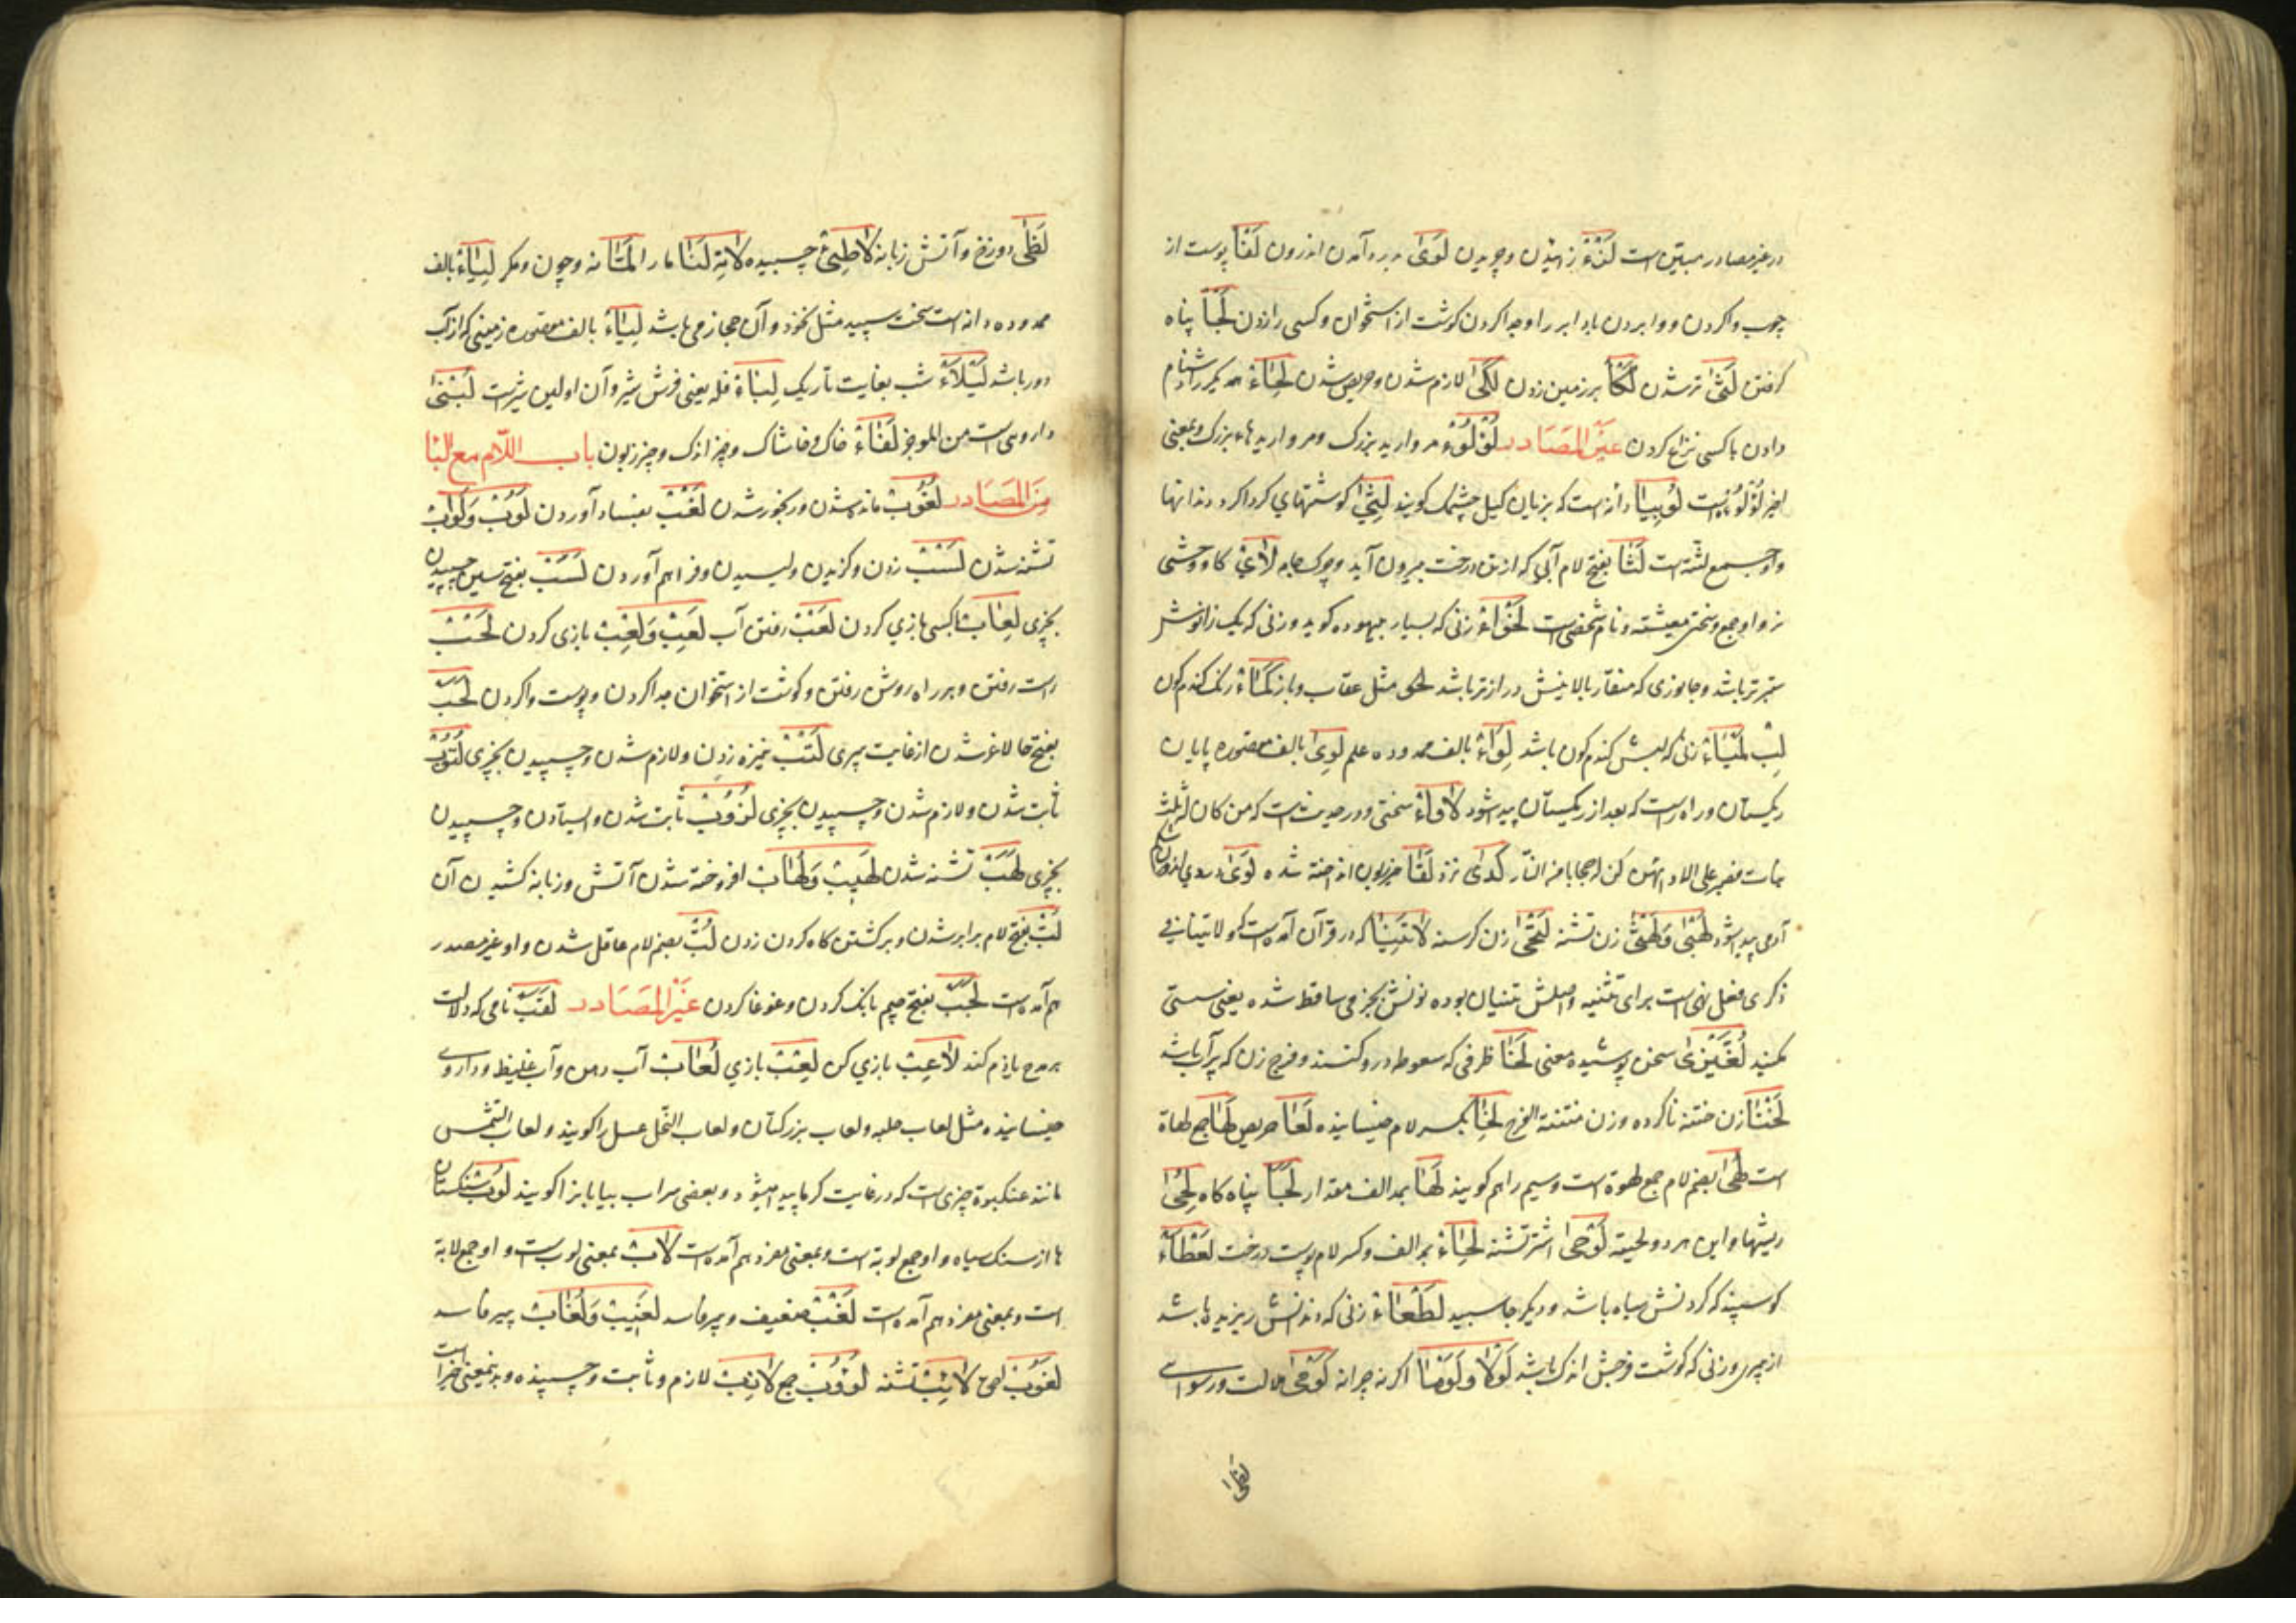 در غیر مصادر مبین است لَتْءٌ زدن و چریدن لَوَی درد آمدن اندرون لَفَا پوست از
چوب وا کردن و وا بردن باد ابر را و جدا کردن گوشت از استخوان و کسی را زدن لَجَأ پناه
گرفتن لَثَی تر شدن لَکَأ بر زمین زدن لَکَی لازم شدن و حریص شدن لِحَاءٌ همدیگر را دشنام
دادن با کسی نزاع کردن غَیرُ المَصَادر لُؤْلُؤٌ مروارید بزرگ و مرواریدهاء بزرگ و بمعنی
اخیر لُؤْلُؤَة است لُوبِیَا دانه است که بزبان کیل چشمک کویند لِثَی کوشتهای کرداکرد دندانها
و او جمع لثه است لَثَا بفتح لام آبی که از تن درخت بیرون آید و چرک جامه لَأَی کاو وحشی
نر و او جمع و سختی معیشة و نام شخصی است لَخْوَاءُ زنی که بسیار بیهوده کوید و زنی که یک زانوش
ستبرتر باشد و جانوری که منقار بالاینش درازتر باشد لحی مثل عقاب و باز لَمَاءٌ رنک کندم کون
لب لَمْیَاءُ زنی که لبش کندم کون باشد لِوَاءٌ بالف ممدوده علم لِوَی بالف مقصوره پایان
ریکستان و راه راست که بعد از ریکستان پیدا شود لَأْوَاءٌ سختی و در حدیث است که من کان له ثلث
بنات فصبر علی لاوائهن کن له حجابا من النّار لَدَی نزد لَقَا چیز زبون انداخته شده لَوَی دردی که در اندرون
آدمی پیدا شود لَهْبَی وَلَهْثَی زن تشنه لَتْحَی زن کرسنه لَاتَنِیَا که در قرآن آمده است که و لا تنیا فی
ذکری فعل نهی است برای تثنیه و اصلش تنیان بوده نونش بجزمی ساقط شده یعنی سستی
مکنید لُغَّیْزَی سخن پوشیده معنی لَخَا ظرفی که سعوط در و کنند و فرج زن که پر آب باشد
لَخْنَا زن ختنه ناکرده و زن منتنة الفرج لِخَا بکسر لام خیسانیده لَعَا حریص لَهَا جمع لهاة
است لُهَی بضم لام جمع لهوة است و سیم را هم کویند لُهَا بمد الف مقدار لَجَأ پناه کاه لِحَی
ریشها و این هر دو لحیة لَوْحَی اشتر تشنه لِحَاءٌ بمد الف و کسر لام پوست درخت لَعْطَاءُ
کوسپند که کردنش سیاه باشد و دیکر جا سپید لَطْعَاءُ زنی که دندانش ریزیده باشد
از پیری و زنی که کوشت فرجش اندک باشد لَوْلَا وَلَوْمَا اکر نه چرا نه
لظی
لَظَی دوزخ و آتش زبانه لَاطِئٌ چسبیده لَنَا ما را لَمَّا نه و چون و مکر لِیَاءٌ بالف
ممدوده دانه است سخت سپید مثل نخود و آن حجاز می باشد لِیَاءٌ بالف مقصوره زمینی که از آب
دور باشد لَیْلَاءُ شب بغایت تاریک لِبَأ فله یعنی فرش شیر و آن اولین شیر است لُبْنَی
داروی است من الموجز لَفَاءٌ خاک و خاشاک و چیز اندک و چیز زبون باب اللّام مع البَا
مِنَ المَصَادر لُغُوبٌ مانده شدن و رنجور شدن لَغْبٌ بفساد آوردن لَوْبٌ وَلُوَابٌ
تشنه شدن لَسْبٌ زدن و کزیدن و لیسیدن و فراهم آوردن لَسَبٌ بفتح سین چسپیدن
بچیزی لِعَابٌ با کسی بازی کردن لَعْبٌ رفتن آب لَعِبٌ وَلَعْبٌ بازی کردن لَحْبٌ
راست رفتن و بر راه روشن رفتن و کوشت از استخوان جدا کردن و پوست وا کردن لَحَبٌ
بفتح حا لاغر شدن از غایت پیری لَتْبٌ نیزه زدن و لازم شدن و چسپیدن بچیزی لُتُوبٌ
ثابت شدن و لازم شدن و چسپیدن بچیزی لُزُوبٌ ثابت شدن و ایستادن و چسپیدن
بچیزی لَهَبٌ تشنه شدن لَهِیبٌ وَلُهَابٌ افروخته شدن آتش و زبانه کشیدن آن
لَبٌّ بفتح لام برابر شدن و برکشتن کاه کردن زدن لُبٌّ بضم لام عاقل شدن و او غیر مصدر
هم آمده است لَجَبٌ بفتح جیم بانک کردن و غوغا کردن غَیْرُ المَصَادر لَقَبٌ نامی که دلالت
بر مدح یا ذم کند لَاعِبٌ بازی کن لِعْبٌ بازی لُعَابٌ آب دهن و آب غلیظ و داروی
خیسانیده مثل لعاب حلبه و لعاب بزر کتان و لعاب النّحل عسل را کویند و لعاب الشّمس
مانند عنکبوة چیزی است که در غایت کرما پیدا میشود و بعضی سراب بیابان را کویند لُوبٌ سنکستان
ها از سنک سیاه و او جمع لوبة است و بمعنی مفرد هم آمده است لَابٌ بمعنی لوب است و او جمع لابة
است و بمعنی مفرد هم آمده است لَغْبٌ ضعیف و پر فاسد لَغِیبٌ وَلُغَابٌ پر فاسد
لَغُوبٌ احمق لَائِبٌ تشنه لُؤُوبٌ جمع لَازِبٌ لازم و ثابت و چسپنده و بدینمعنی اخیر است